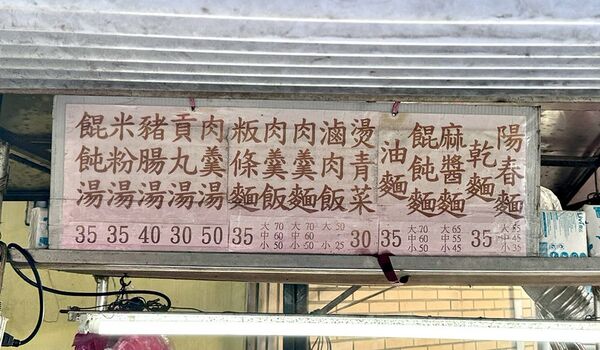 陽春麵
大55
中45
小35
乾麵
35
麻醬麵
大65
中55
小45
餛飩麵
大70
中60
小50
油麵
35
燙青菜
30
滷肉飯
大50
小25
肉羹麵
大70
中60
小50
肉羹飯
大70
中60
小50
粄條麵
35
肉羹湯
50
貢丸湯
30
豬腸湯
40
米粉湯
35
餛飩湯
35